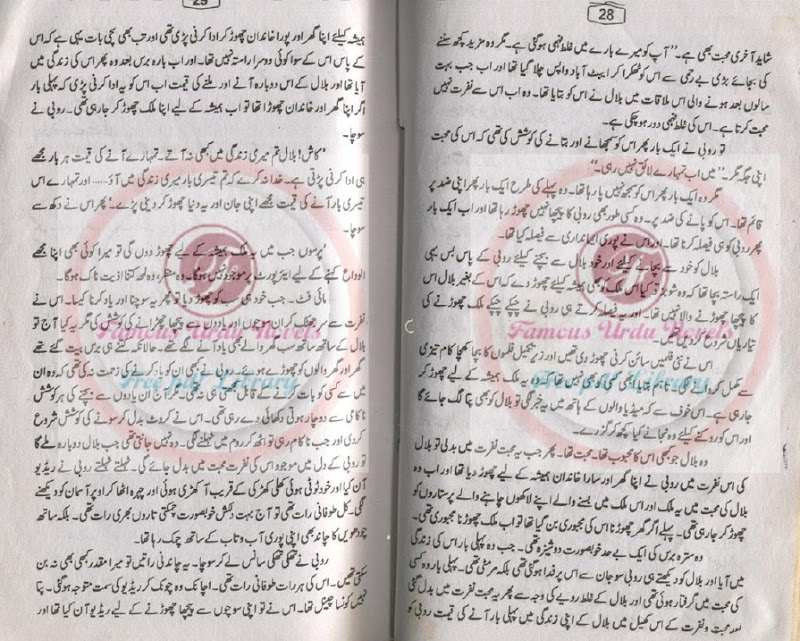 28
شاید آخری محبت بھی ہے۔'' آپ کو میرے بارے میں غلط فہمی ہو گئی ہے۔ مگر وہ مزید کچھ سننے
کی بجائے بڑی بے رحمی سے اس کو ٹھکرا کر ایبٹ آباد واپس چلا گیا تھا اور اب جب بہت
سالوں بعد ہونے والی اس ملاقات میں بلال نے اس کو بتایا تھا۔ وہ اب اس سے نفرت نہیں
محبت کرتا ہے۔ اس کی غلط فہمی دور ہو چکی ہے۔
تو روبی نے ایک بار پھر اس کو سمجھانے اور بتانے کی کوشش کی تھی کہ اس کی محبت
اپنی جگہ مگر۔ ''میں اب تمہارے لائق نہیں رہی۔''
مگر وہ ایک بار پھر اس کو سمجھ نہیں پا رہا تھا۔ وہ پہلے کی طرح ایک بار پھر اپنی ضد پر
قائم تھا۔ اس کو پانے کی ضد پر۔ وہ کسی طور بھی روبی کا پیچھا نہیں چھوڑ رہا تھا اور اب ایک بار
پھر روبی کو ہی فیصلہ کرنا تھا۔ اور اس نے پوری ایمانداری سے فیصلہ کیا تھا۔
بلال کو خود سے بچانے کیلئے اور خود بلال سے بچنے کیلئے روبی کے پاس بس یہی
ایک راستہ بچا تھا کہ وہ شوبز تو کیا اس ملک کو بھی ہمیشہ کیلئے چھوڑ دے کہ اس کے بغیر بلال اس
کا پیچھا چھوڑنے والا نہیں تھا۔ اور یہ فیصلہ کرتے ہی روبی نے چپکے چپکے ملک چھوڑنے کی
تیاریاں شروع کر دی تھیں۔
اس نے نئی فلمیں سائن کرنی چھوڑ دی تھیں اور زیر تکمیل فلموں کا بچا کھچا کام تیزی
سے مکمل کروانے لگی۔ تاہم بتایا بھی کسی کو نہیں تھا کہ وہ یہ ملک ہمیشہ کے لیے چھوڑ کر
جا رہی ہے۔ اس خوف سے کہ میڈیا والوں کے ہاتھ میں یہ خبر لگی تو بلال کو بھی پتا لگ جائے گا
اور اس کو روکنے کیلئے وہ نجانے کیا کچھ کر گزرے۔
وہ بلال جو کبھی اس کا محبوب تھا۔ محبت تھا۔ پھر جب یہ محبت نفرت میں بدلی تو بلال
کی اس نفرت میں روبی نے اپنا گھر اور سارا خاندان ہمیشہ کے لیے چھوڑ دیا تھا اور اب وہ
بلال کی محبت میں یہ ملک اور اس ملک میں بسنے والے اپنے لاکھوں چاہنے والے پرستاروں کو
چھوڑ کر جا رہی تھی۔ پہلے اگر گھر چھوڑنا اس کی مجبوری بن گیا تھا تو اب ملک چھوڑنا مجبوری تھی۔
وہ سترہ برس کی ایک بے حد خوبصورت دوشیزہ تھی۔ جب وہ پہلی بار اس کی زندگی
میں آیا اور بلال کو دیکھتے ہی روبی سو جان سے اس پر فدا ہو گئی تھی۔ بلکہ مر مٹی تھی۔ پہلی بار وہ کسی
کی محبت میں گرفتار ہوئی تھی اور بلال کے غلط رویے کی وجہ سے پھر یہ محبت نفرت میں بدل گئی
اور محبت و نفرت کے اس کھیل میں بلال کے اس کی زندگی میں پہلی بار آنے کی قیمت روبی کو
29
ہمیشہ کیلئے اپنا گھر اور پورا خاندان چھوڑ کر ادا کرنی پڑی تھی اور تب بھی سچی بات یہی ہے کہ اس
کے پاس اس کے سوا کوئی دوسرا راستہ نہیں تھا۔ اور اب بارہ برس بعد وہ پھر اس کی زندگی میں
آیا تھا اور بلال کے اس دوبارہ آنے اور ملنے کی قیمت اب اس کو یہ ادا کرنی پڑی تھی کہ پہلی بار
اگر اپنا گھر اور خاندان چھوڑا تھا تو اب ہمیشہ کے لیے اپنا ملک چھوڑ کر جا رہی تھی۔ روبی نے
سوچا۔
''کاش! بلال تم میری زندگی میں کبھی نہ آتے۔ تمہارے آنے کی قیمت ہر بار مجھے
ہی ادا کرنی پڑتی ہے۔ خدا نہ کرے کہ تم تیسری بار میری زندگی میں آؤ..... اور تمہارے اس
تیسری بار آنے کی قیمت مجھے اپنی جان اور یہ دنیا چھوڑ کر دینی پڑے۔'' پھر اس نے دکھ سے
سوچا۔
''پرسوں جب میں یہ ملک ہمیشہ کے لیے چھوڑ دوں گی تو میرا کوئی بھی اپنا مجھے
الوداع کہنے کے لیے ایئر پورٹ پر موجود نہیں ہوگا۔ وہ منظر، وہ لمحہ کتنا اذیت ناک ہوگا۔
مائی فٹ۔ جب خود ہی سب کو چھوڑ دیا تو پھر یہ سوچنا اور یاد کرنا کیسا۔ اس نے
نفرت سے سر جھٹک کر ان سوچوں اور یادوں سے پیچھا چھڑانے کی کوشش کی مگر یہ کیا آج تو
بلال کے ساتھ ساتھ سب گھر والے بھی یاد آنے لگے تھے۔ حالانکہ کتنے ہی برس بیت گئے تھے
گھر اور گھر والوں کو چھوڑے ہوئے۔ روبی نے بھی ان کو یاد کرنے کی زحمت نہ کی تھی کہ وہ ان
میں سے کسی کو یاد کرنے کے قابل سمجھتی ہی نہ تھی۔ مگر آج ان یادوں سے بچنے کی ہر کوشش
ناکامی سے دوچار ہوتی دکھائی دے رہی تھی۔ اس نے کروٹ بدل کر سونے کی کوشش شروع
کر دی اور جب ناکام رہی تو اٹھ کر روم میں ٹہلنے لگی۔ وہ نہیں جانتی تھی جب بلال دوبارہ ملے گا
تو روبی کے دل میں موجود اس کی نفرت محبت میں بدل جائے گی۔ ٹہلتے ٹہلتے روبی نے ریڈیو
آن کیا اور خود ٹہلتی ہوئی کھلی کھڑکی کے قریب آ کھڑی ہوئی اور چہرہ اٹھا کر اوپر آسمان کو دیکھنے
لگی۔ کل طوفانی رات تھی تو آج بہت دلکش خوبصورت چمکتی تاروں بھری رات تھی۔ بلکہ ساتھ
چودھویں کا چاند بھی اپنی پوری آب و تاب کے ساتھ چمک رہا تھا۔
روبی نے تھکی تھکی سانس لے کر سوچا۔ یہ چاندنی راتیں تو میرا مقدر کبھی بھی نہ بن
سکتی تھیں۔ اس کی ہر رات طوفانی رات تھی۔ اچانک وہ چونک کر ریڈیو کی سمت متوجہ ہو گئی۔ پتا
نہیں کونسا چینل تھا۔ اس نے تو اپنی سوچوں سے پیچھا چھوڑنے کے لیے ریڈیو آن کیا تھا اور
Famous Urdu Novels
Free pdf Library
Famous Urdu Novels
Free pdf Library